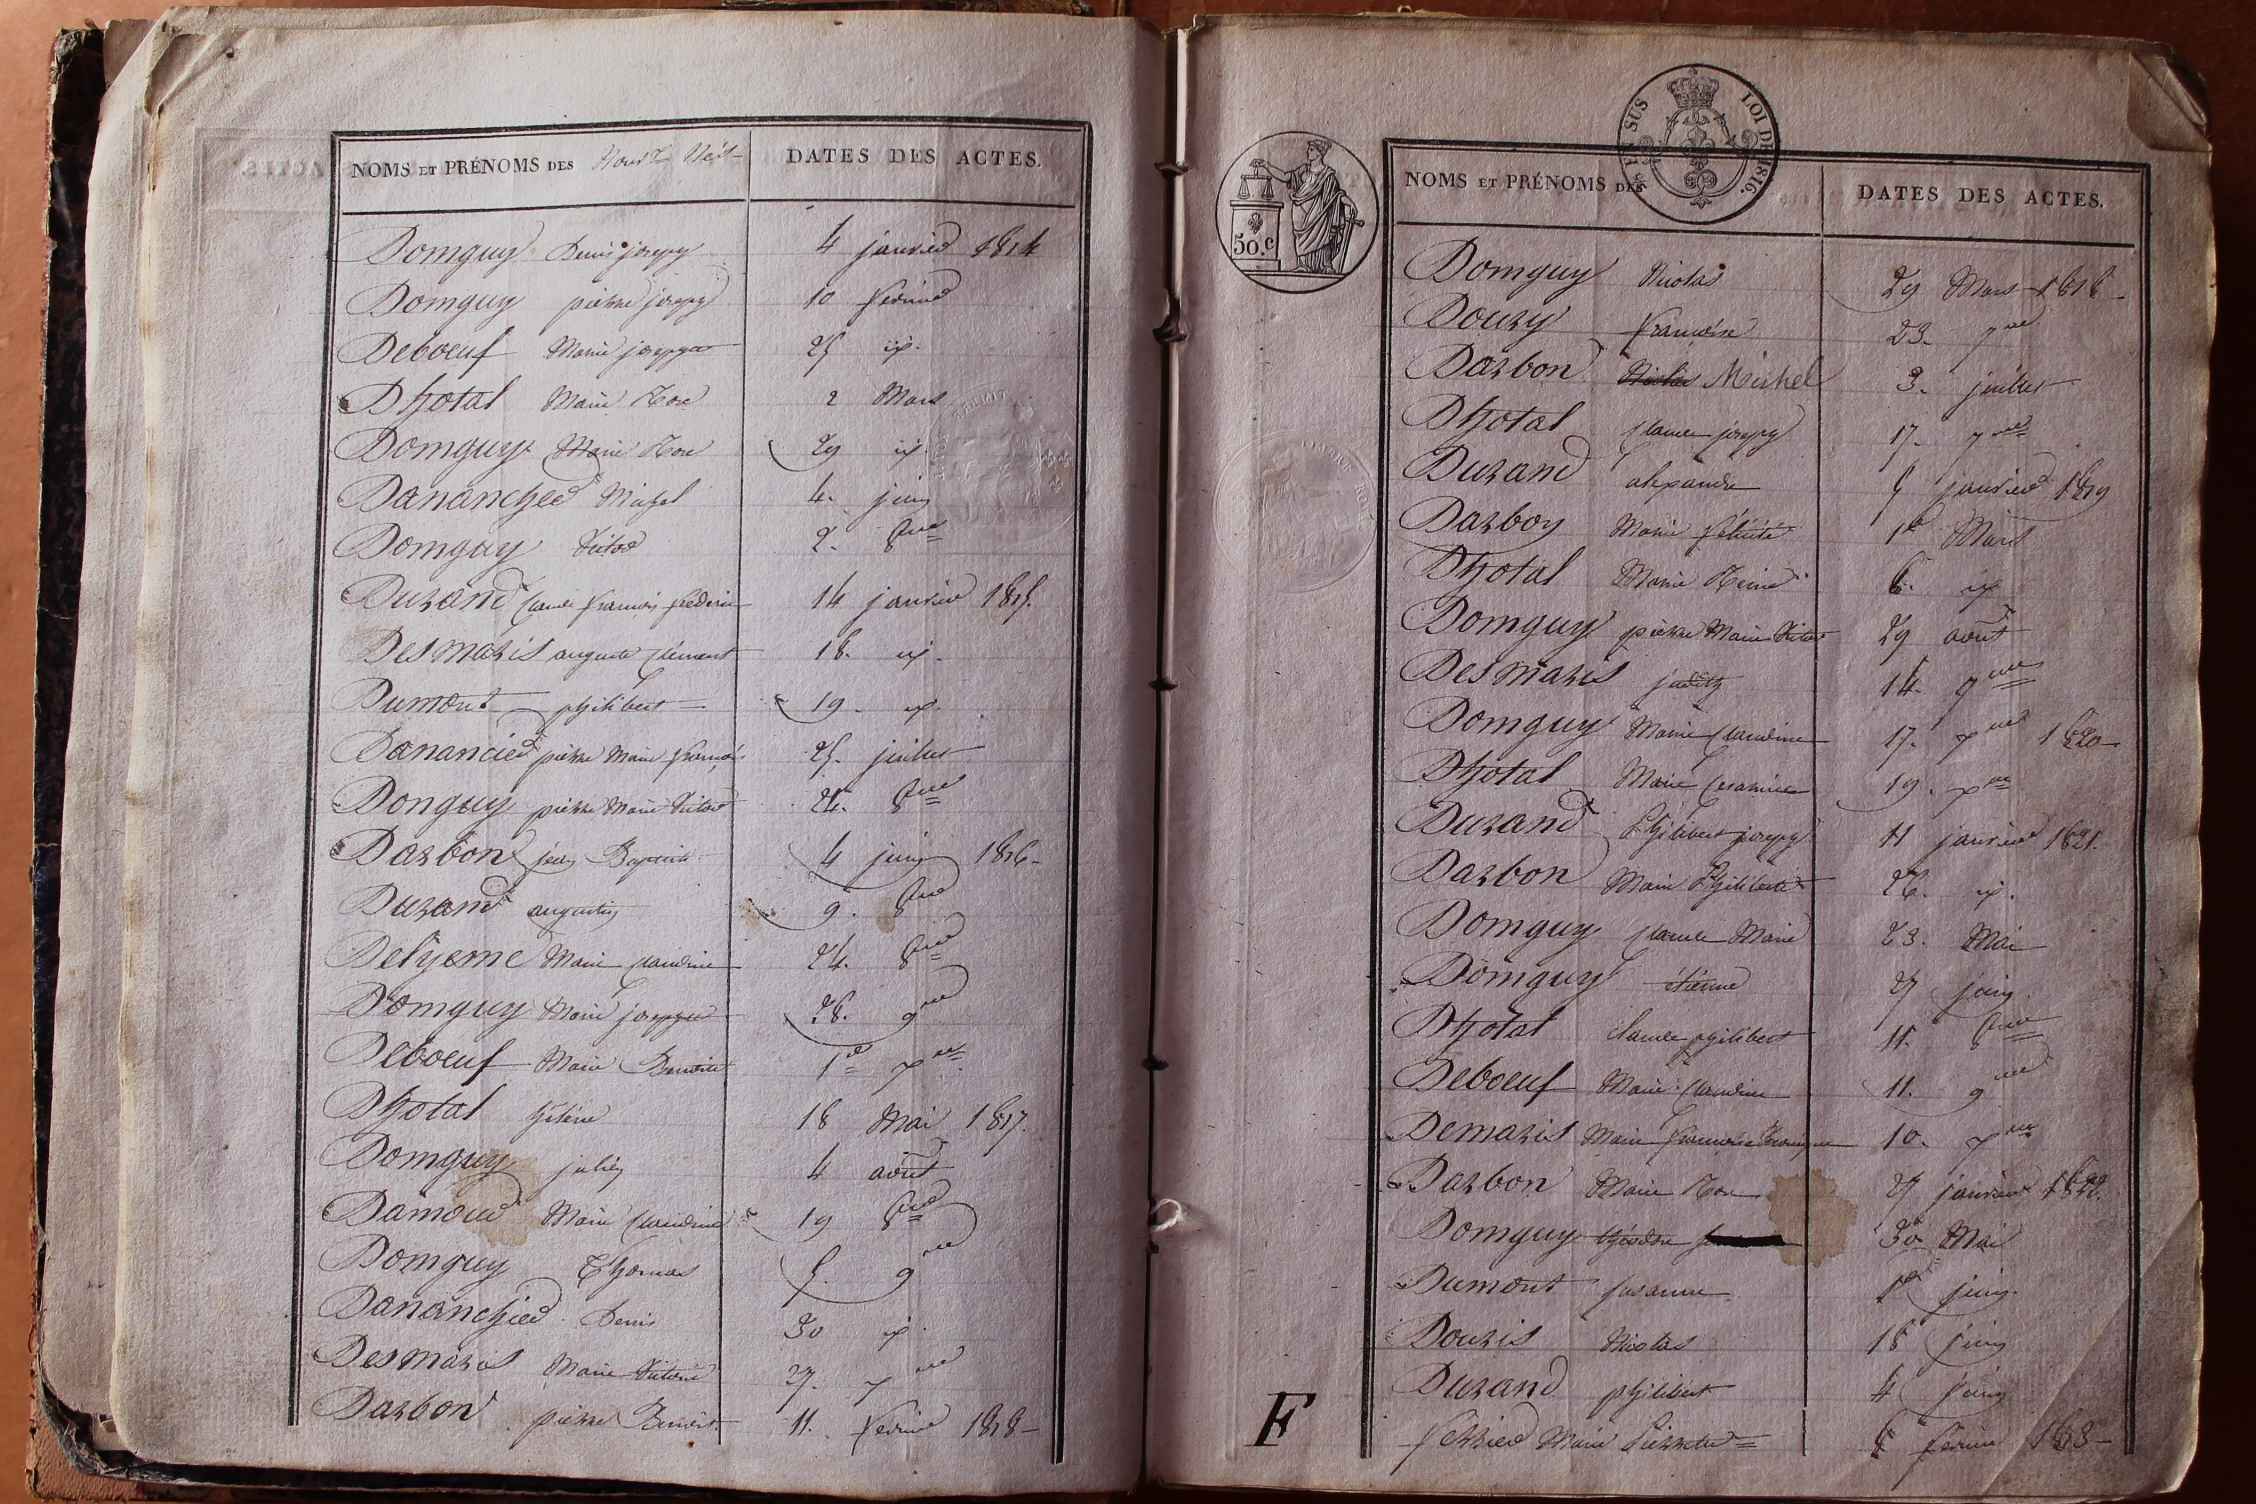 NOMS ET PRÉNOMS DES
DATES DES ACTES.
Domguy Denis joseph 4 janvier 1814
Domguy pierre joseph 10 fevrier
Deboeuf Marie josephte 25 id.
Dhotal Marie Rose 2 Mars
Domguy Marie Rose 29 id.
Danancher Michel 4. juin
Domguy Victor 2. 8bre
Durand Claude François frédéric 14 janvier 1815.
Desmaris auguste Clément 18. id.
Dumont philibert 19. id.
Danancier pierre Marie françois 25. juillet
Donguy pierre Marie Victor 24. 8bre
Darbon jean Baptiste 4 juin 1816
Durand augustin 9. 8bre
Delyeme Marie Claudine 24. 8bre
Domguy Marie josephte 28. 9bre
Deboeuf Marie Benoite 1er Xbre
Dhotal hélène 18 Mai 1817.
Domguy julien 4 août
Damour Marie Claudine 19 8bre
Domguy Thomas 5. 9bre
Dananchier Denis 30 id.
Desmaris Marie Victoire 27. Xbre
Darbon pierre Benoit. 11. fevrier 1818
EN SUS LOI DE 1816.
50.c
NOMS ET PRÉNOMS DES
DATES DES ACTES.
Domguy Nicolas 29 Mars 1818
Doury françoise 23. 7bre
Darbon Nicolas Michel 3. juillet
Dhotal Claude joseph 17. 7bre
Durand alexandre 5 janvier 1819
Darboy Marie félicité 1er Mars
Dhotal Marie Reine 6. id
Domguy pierre Marie Victor 29 août
Desmaris judith 14. 9bre
Domguy Marie Claudine 17. Xbre 1820
Dhotal Marie 19. Xbre
Durand Philibert joseph 11 janvier 1821.
Darbon Marie Philiberte 26. id.
Domguy Claude Marie 23. Mai
Domguy étienne 27 juin.
Dhotal Claude philibert 11. 8bre
Deboeuf Marie Claudine 11. 9bre
Demaris Marie françoise 10. Xbre
Darbon Marie Rose 27 janvier 1822.
Domguy théodore 30 Mai
Dumont susanne 1er juin.
Douris Nicolas 18 juin
Durand philibert 4 juin
F
ferrier Marie Pierrette 8 fevrier